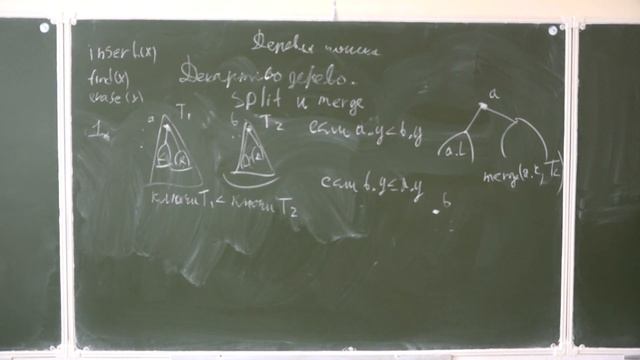 Деревья поиска
insert(x)
find(x)
erase(x)
Декартово дерево.
split и merge
1.
a T₁
b T₂
L R
L R
ключи T₁ < ключи T₂
если a.y < b.y
a
a.L
merge(a.R, T₂)
если b.y < a.y
b